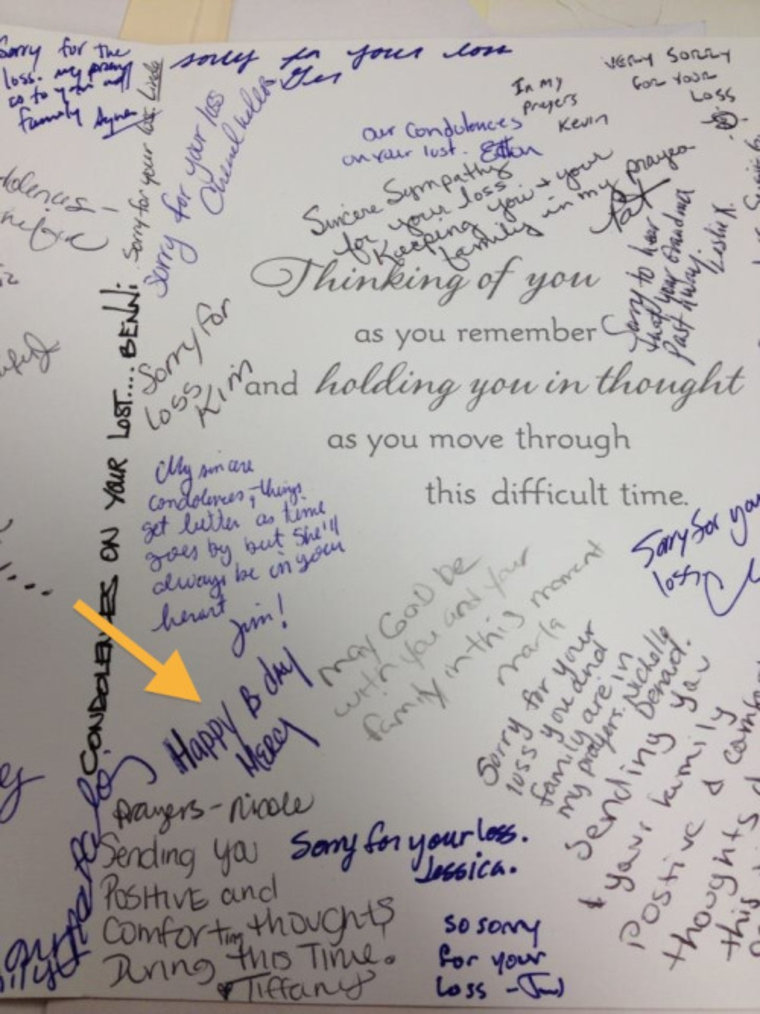 Sorry for the
loss. my
to your
family
sorry for your loss
VERY SORRY
FOR YOUR
LOSS
In my
prayers
Kevin
our condolences
on your lost. Ethan
Sorry for your loss
Sorry for your loss Linda
Sincere Sympathy
for your loss
Keeping you & your
family in my prayers
Pat
Sorry to hear
that your Grandma
Past away.
Leslie K.
Thinking of you
as you remember
and holding you in thought
as you move through
this difficult time.
CONDOLENCES ON YOUR LOST.... BENNI
Sorry for
loss
Kim
My sincere
condolences-things
get better as time
goes by but she'll
always be in your
heart
Jim!
Sorry for your
loss
May GOD be
with you and your
family in this moment
Marla
Happy B day
Mercy
Sorry for your
loss you and
family are in
my prayers. Nichelle
Sending you
& your family
Postive & comfort
thoughts
this
Prayers-Nicole
Sending you
POSITIVE and
Comforting thoughts
During this Time.
Tiffany
Sorry for your loss.
Jessica.
So sorry
for your
loss -